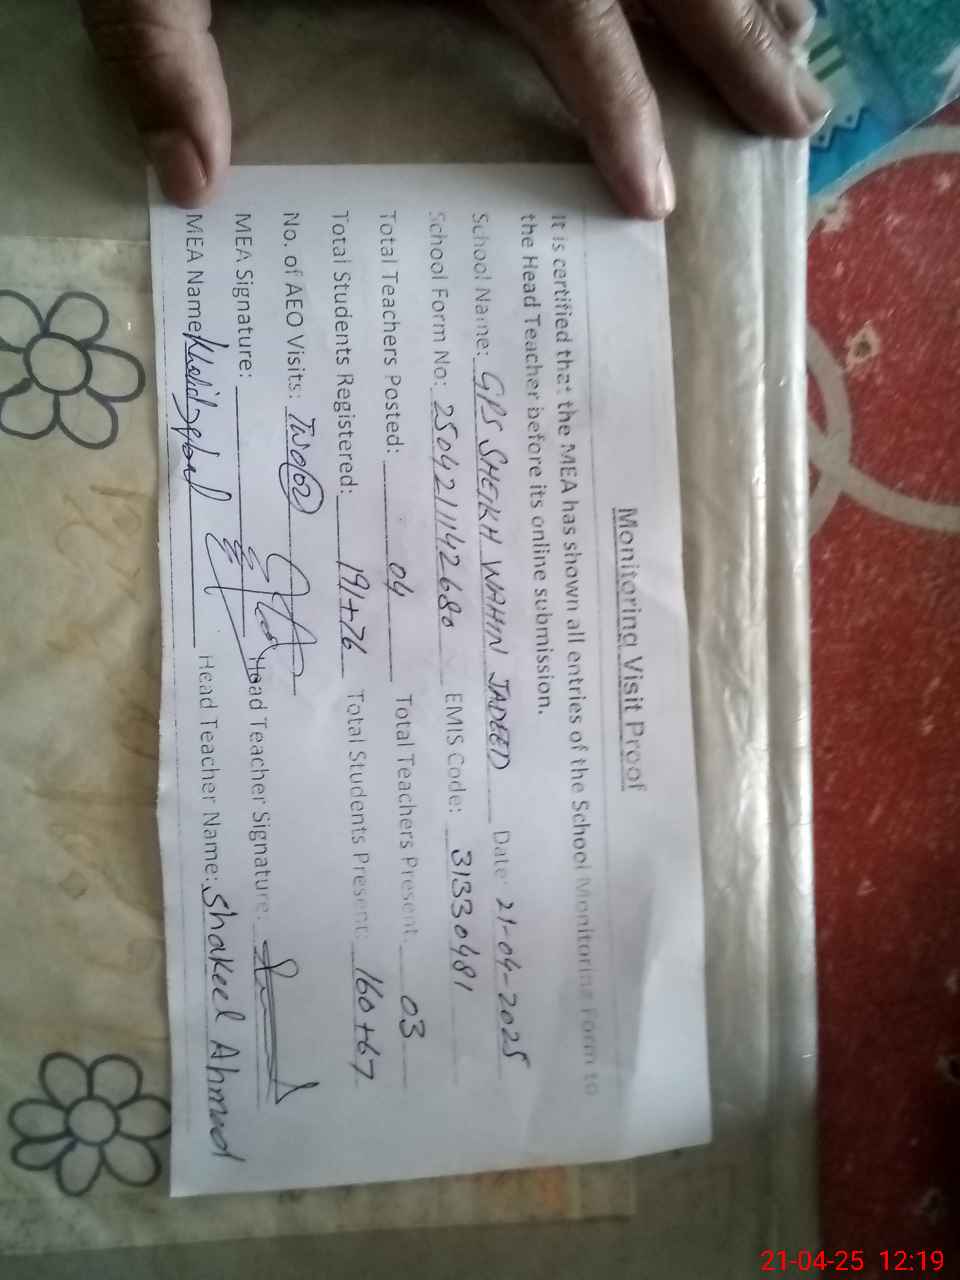 Monitoring Visit Proof
It is certified that the MEA has shown all entries of the School Monitoring Form to
the Head Teacher before its online submission.
School Name: GPS SHEIKH WAHIN JADEED Date: 21-04-2025
School Form No: 2504211142680 EMIS Code: 31330481
Total Teachers Posted: 04 Total Teachers Present: 03
Total Students Registered: 191+76 Total Students Present: 160+67
No. of AEO Visits: Two(02)
MEA Signature: Head Teacher Signature:
MEA Name: Khalid Iqbal Head Teacher Name: Shakeel Ahmad
21-04-25 12:19